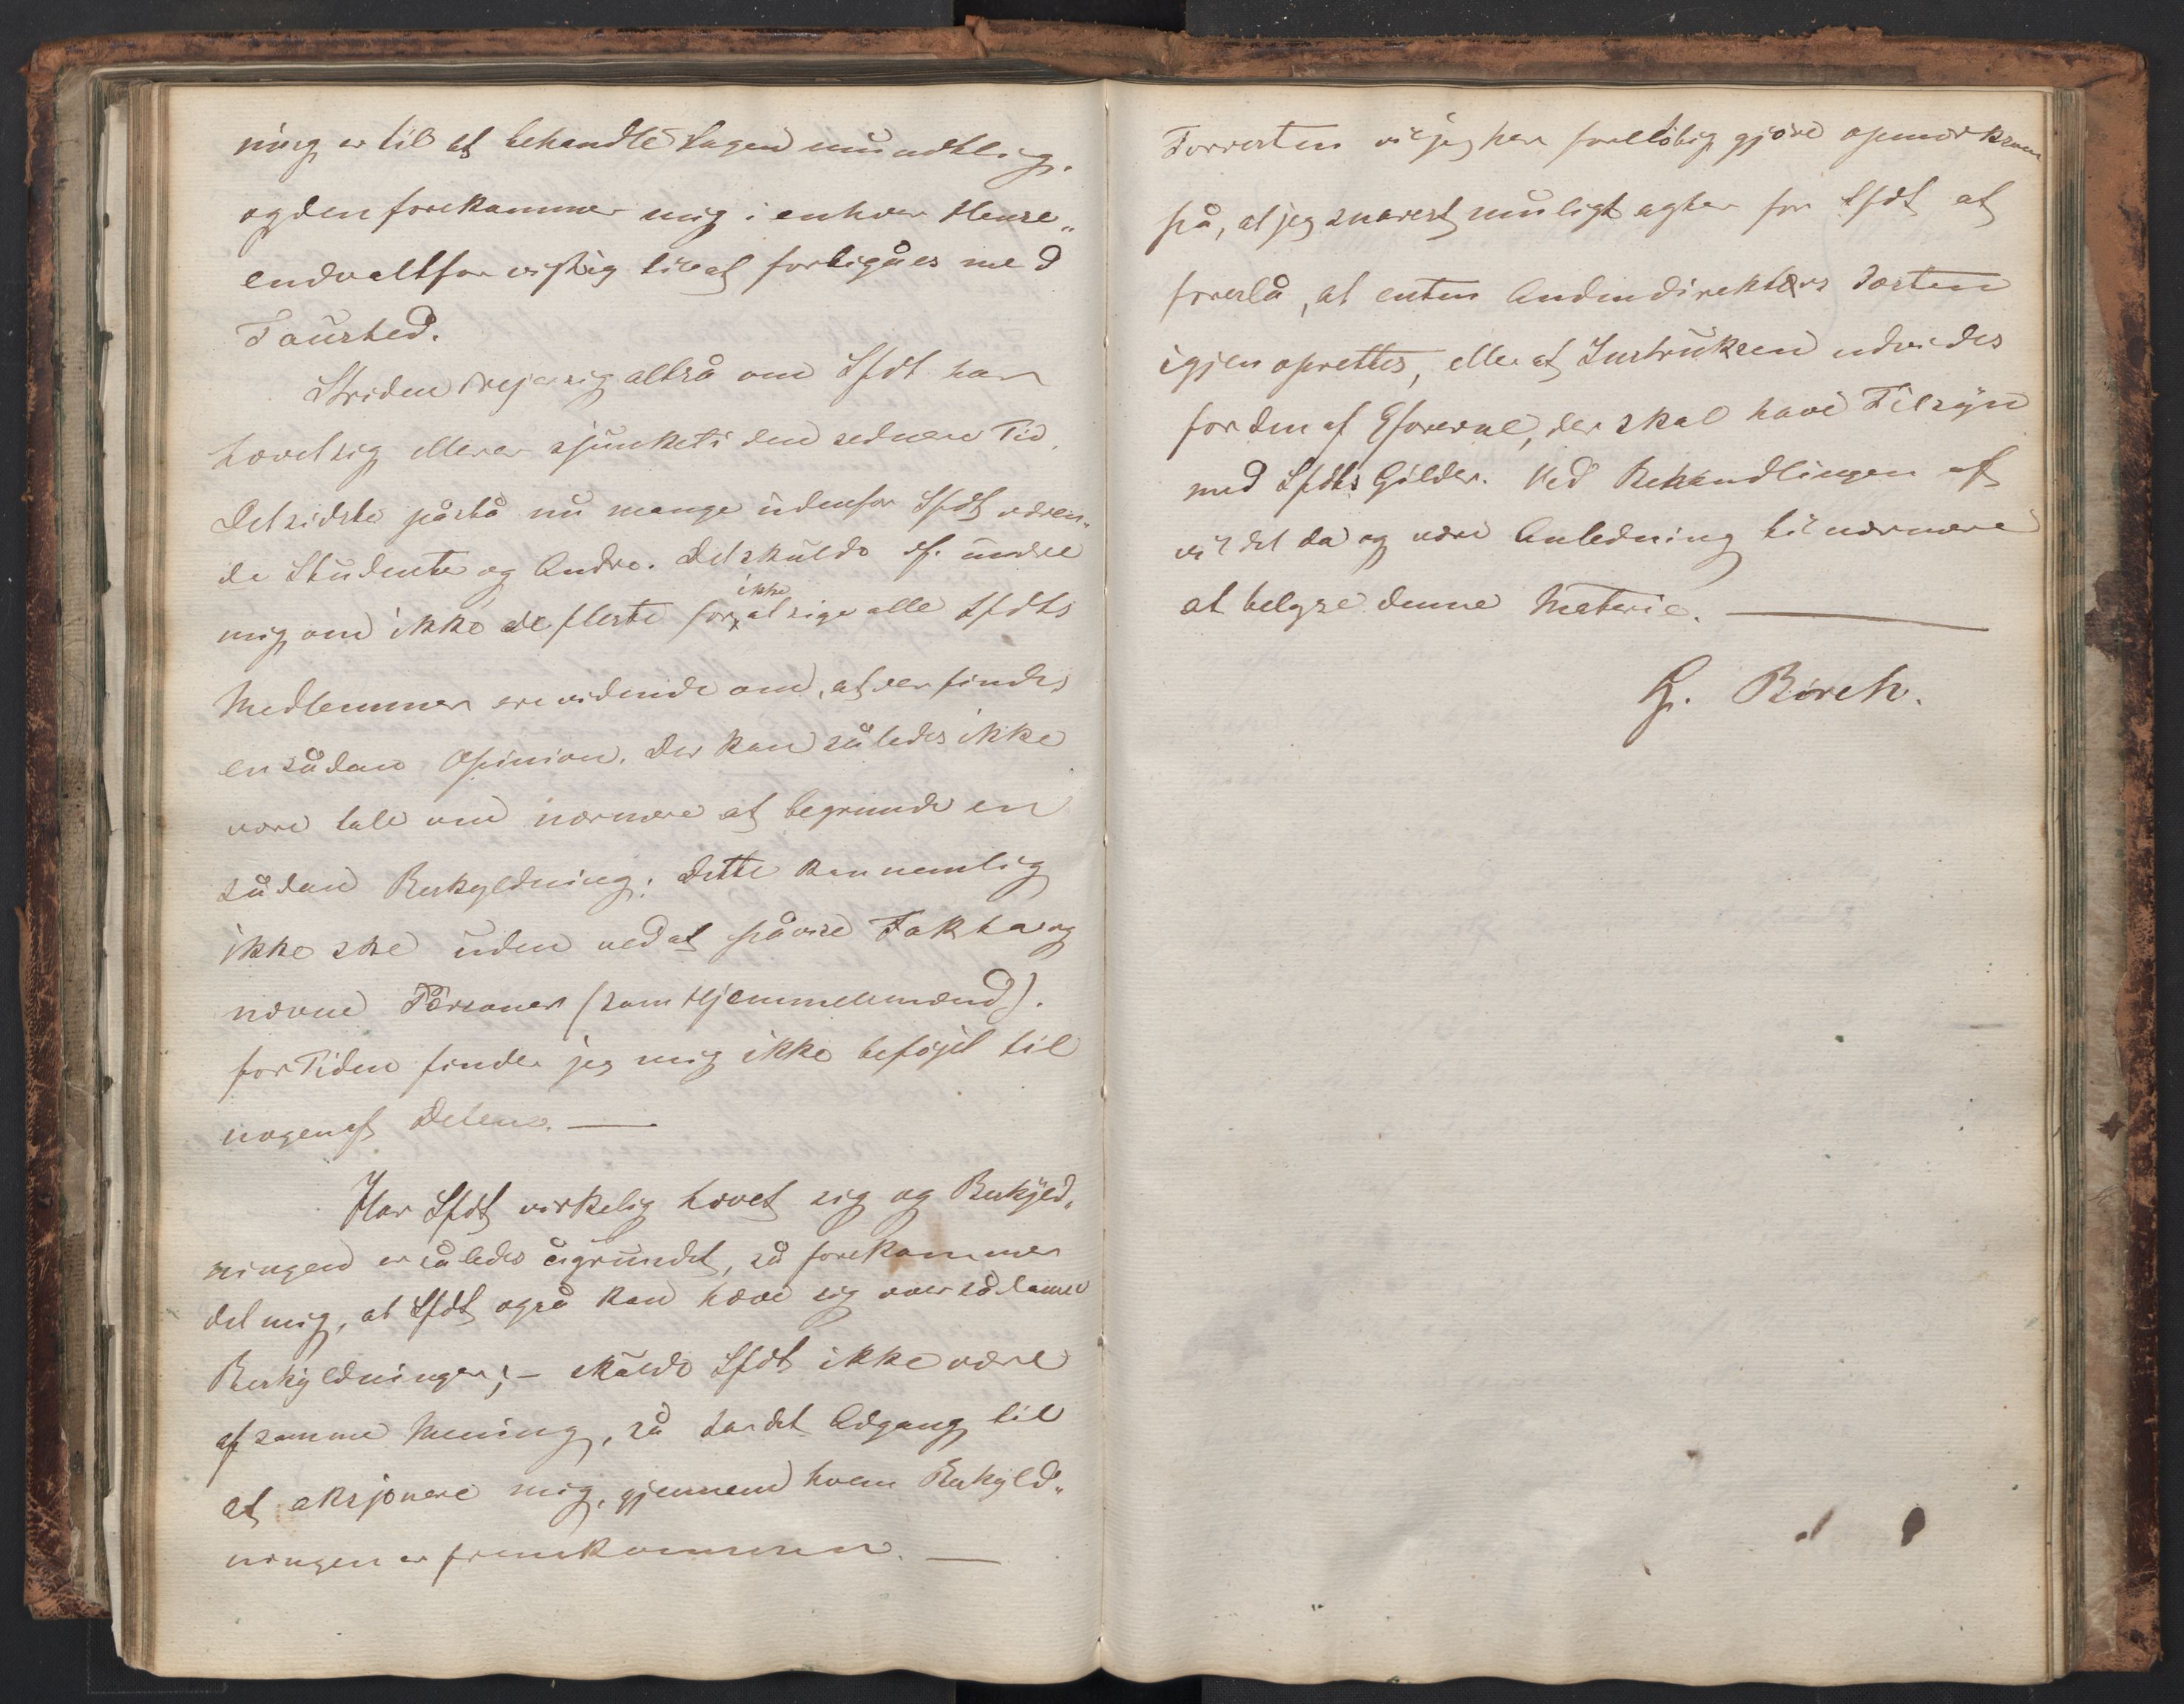 ning er til at behandle Sagen mundtlig.
og den forekommer mig i enhver Hense„
endo altfor vigtig til at forbigåes med
Taushed.
Striden drejer sig altså om Sfdt har
hævet sig eller er sjunket i den sednere Tid.
Det sidste påstå nu mange udenfor Sfdt væren„
de Studenter og Andre. Det skulde af. undre
mig om ikke de fleste for ikke at sige alle Sfdts
Medlemmer ere vidende om, at der findes
en sådan Opinion. Der kan således ikke
være tale om nærmere at begrunde en
sådan Beskyldning; dette kan nemlig
ikke ske uden ved at påvise Fakta og
nævne Personer (som Hjemmelsmænd).
for Tiden finder jeg mig ikke beføjet til
nogen af Delene. —
Har Sfdt virkelig hævet sig og Beskyld„
ningen er således ugrundet, så forekommer
det mig, at Sfdt også kan hæve sig over sådanne
Beskyldninger; – skulde Sfdt ikke være
af samme Mening, så har det Adgang til
at aksjonere mig, gjennem hvem Beskyld„
ningen er fremkommen. —
Forresten vil jeg her foreløbig gjøre opmærksom
på, at jeg snarest muligt agter for Sfdt at
foreslå, at enten Andendirektørs Posten
igjen oprettes, eller at Instruksen udvides
for den af Eforerne, der skal have Tilsyn
med Sfdts Gilder. Ved Behandlingen af
vil det da og være Anledning til nærmere
at belyse denne Materie. —
H. Børch.